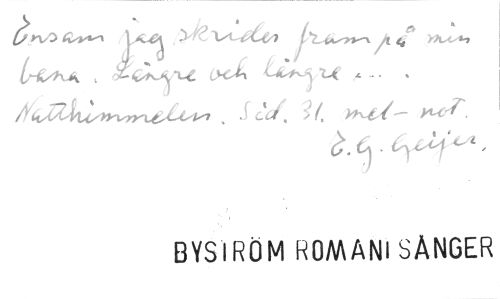 Ensam jag skrider fram på min
bana. Längre och längre ... .
Natthimmelen. Sid. 31. mel-not.
E. G. Geijer.
BYSTRÖM ROMANI SÅNGER